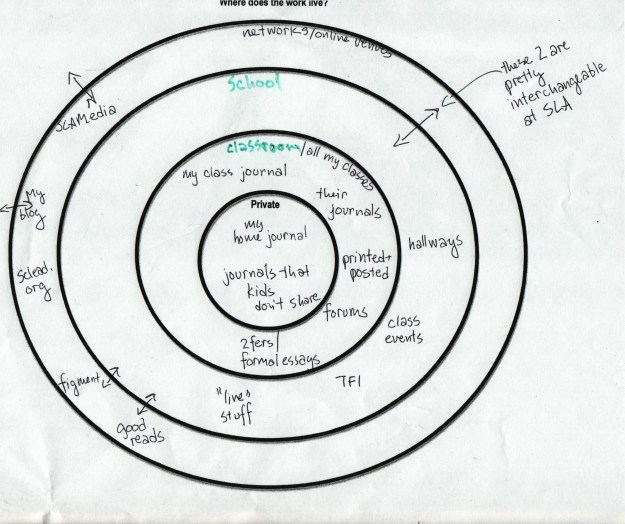 Where does the work live?
networks/online venues
these 2 are
pretty
interchangeable
at SLA
School
SLAMedia
classroom/all my classes
my class journal
their
journals
My
blog
Private
my
home journal
hallways
printed+
posted
sclead.
org
journals that
kids
don't share
forums
class
events
2fers/
formal essays
figment
TFI
"live"
stuff
good
reads